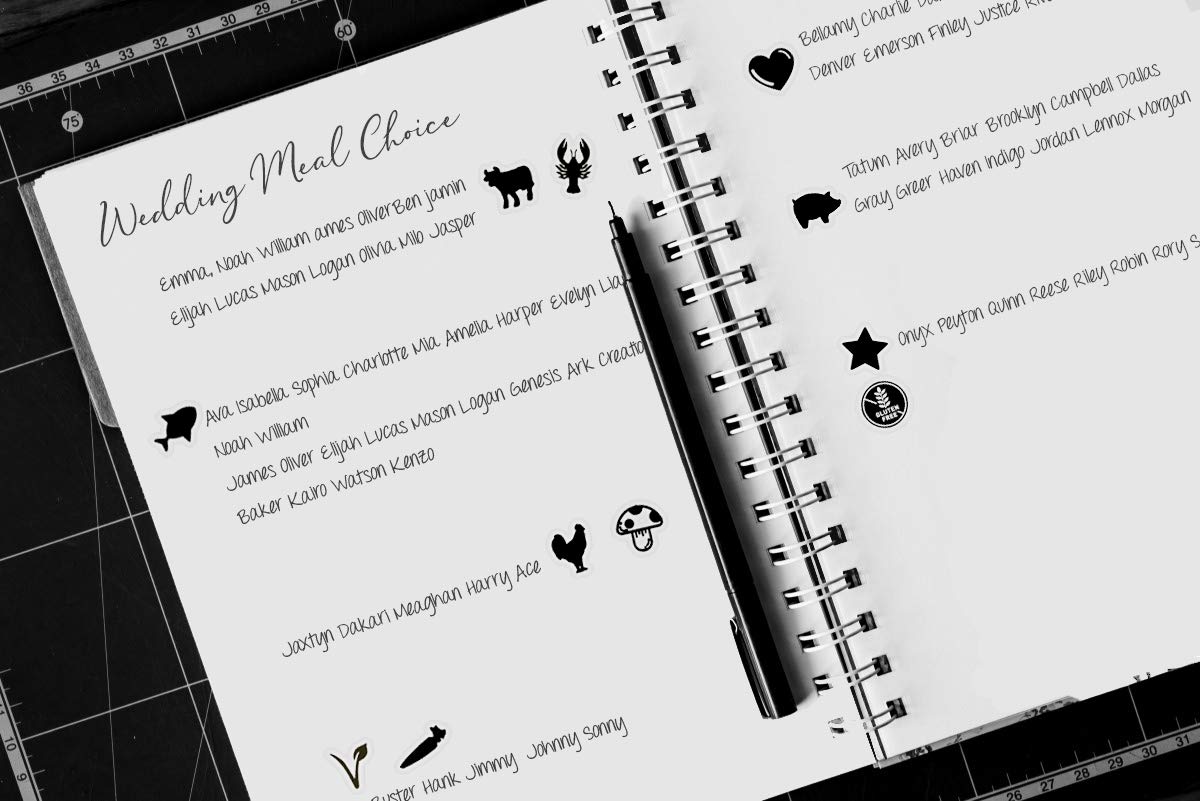 Wedding Meal Choice
Emma, Noah William ames OliverBen jamin
Elijah Lucas Mason Logan Olivia Milo Jasper
Ava Isabella Sophia Charlotte Mia Amelia Harper Evelyn
Noah William
James Oliver Elijah Lucas Mason Logan Genesis Ark
Baker Kairo Watson Kenzo
Jaxtyn Dakari Meaghan Harry Ace
Hank Jimmy Johnny Sonny
Bellamy Charlie
Denver Emerson Finley Justice
Tatum Avery Briar Brooklyn Campbell Dallas
Gray Greer Haven indigo Jordan Lennox Morgan
Onyx Peyton Quinn Reese Riley Robin Rory
GLUTEN
FREE
36 35 34 33 32 31 30 29 28
75
60
10
9
26 27 28 29 30 31